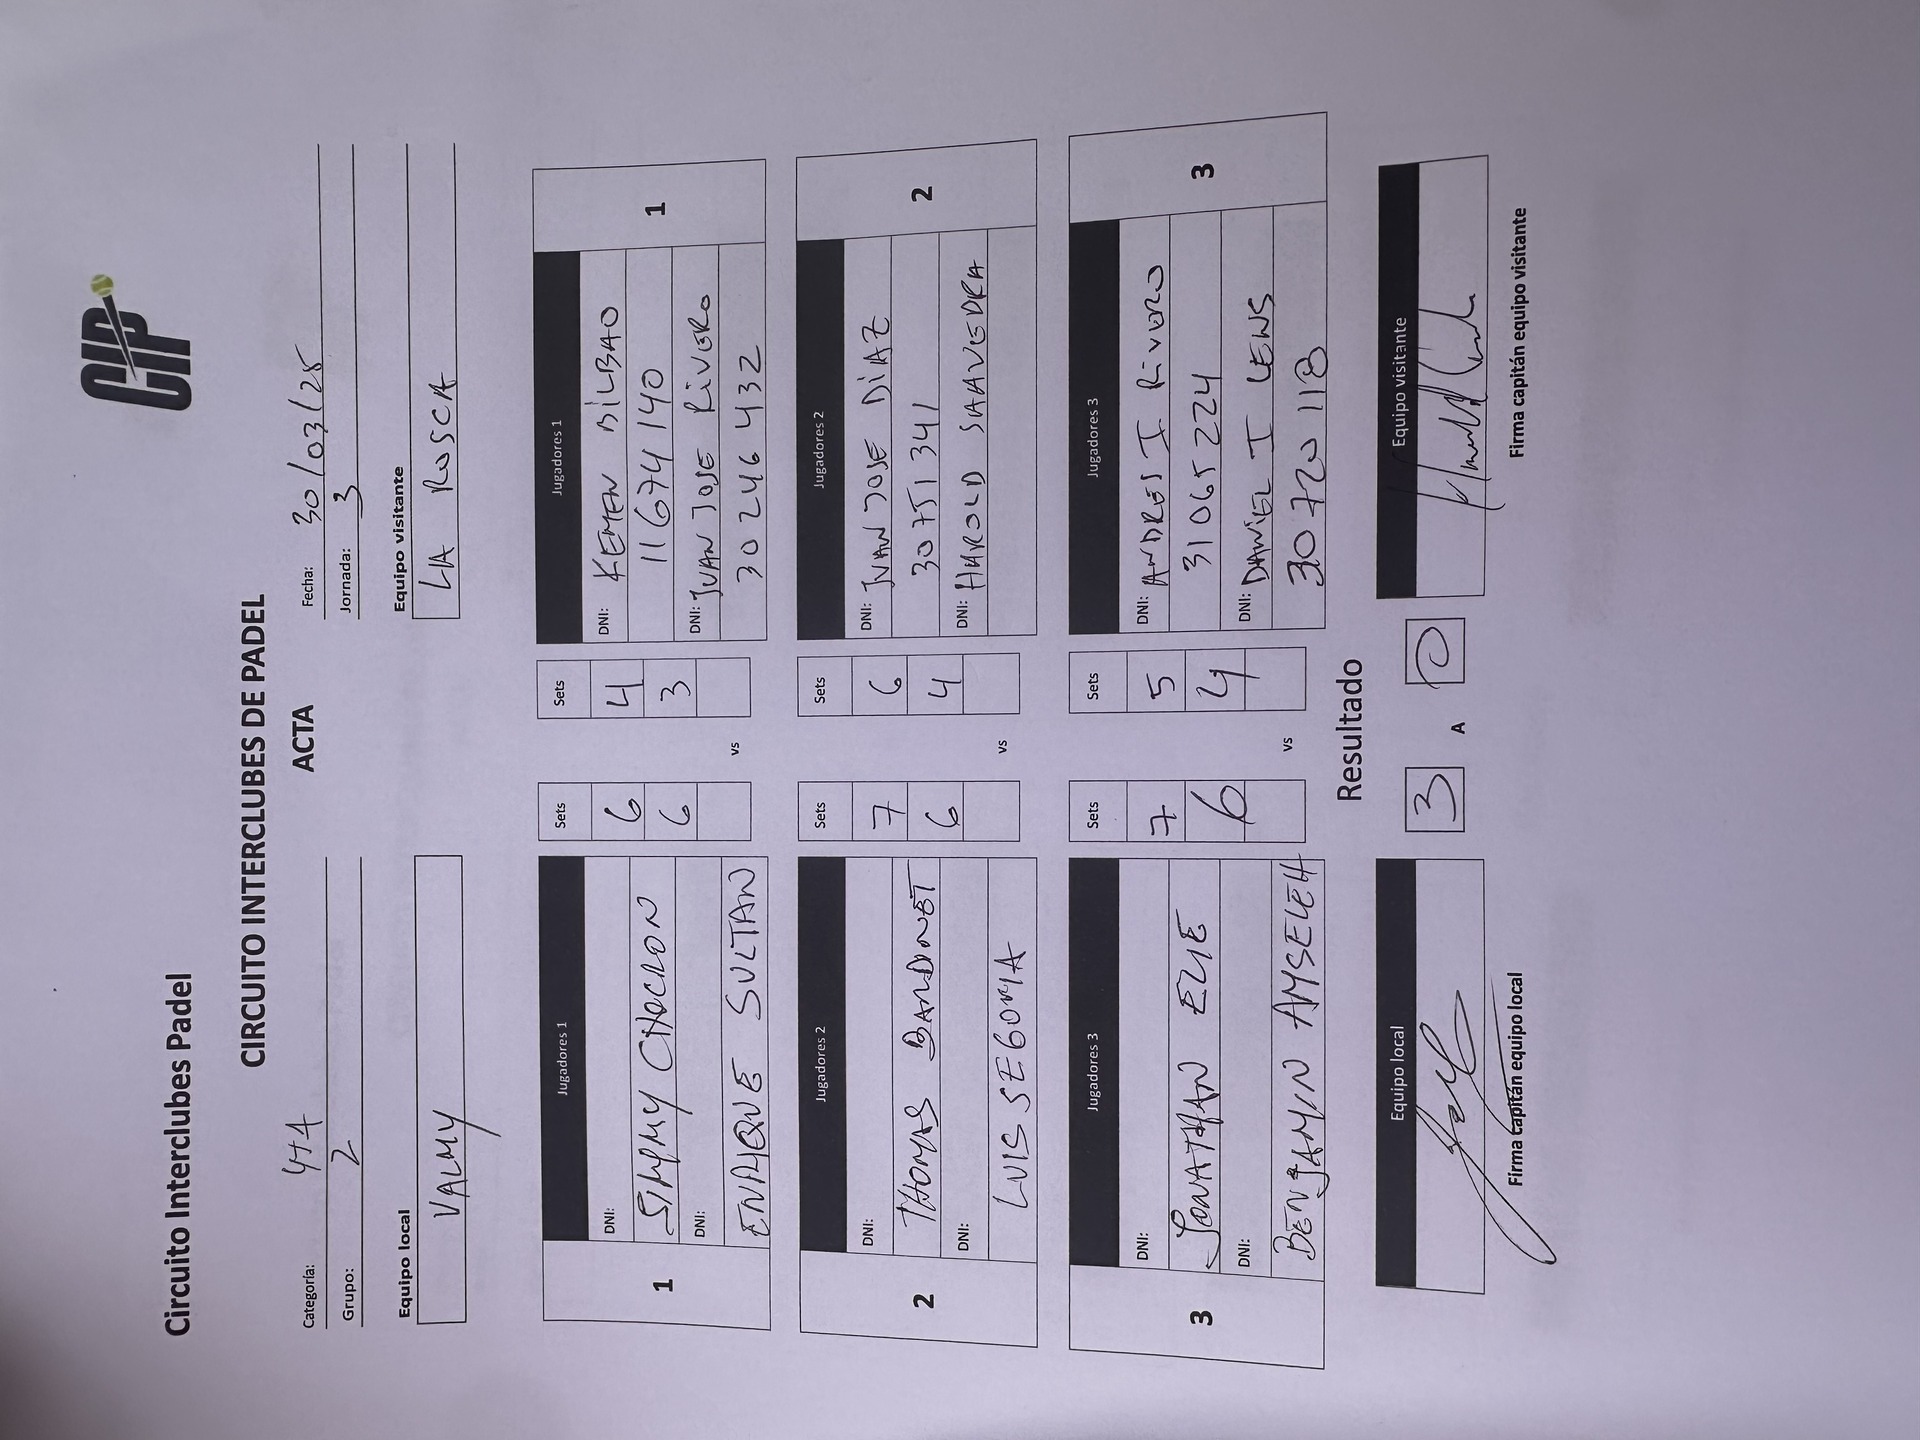 CIP
Circuito Interclubes Padel
CIRCUITO INTERCLUBES DE PADEL
ACTA
Categoría: 4tA
Fecha: 30/03/25
Grupo: 2
Jornada: 3
Equipo local
Equipo visitante
VALMY
LA ROSCA
Jugadores 1 Sets Sets Jugadores 1
1
DNI:
SIMMY CHOCRON
DNI:
ENRIQUE SULTAN
6
6
vs
4
3
DNI: KEMEN BILBAO
11674140
DNI: JUAN JOSE RIVERO
30246432
1
Jugadores 2 Sets Sets Jugadores 2
2
DNI:
THOMAS BANDINET
DNI:
LUIS SEGOVIA
7
6
vs
6
4
DNI: JUAN JOSE DIAZ
30751341
DNI: HAROLD SAAVEDRA
2
Jugadores 3 Sets Sets Jugadores 3
3
DNI:
JONATHAN ELIE
DNI:
BENJAMIN AMSELEH
7
6
vs
5
4
DNI: ANDRES I RIVERO
31065224
DNI: DANIEL I LEWS
30720118
3
Resultado
Equipo local
Equipo visitante
3 A 0
Firma capitán equipo local
Firma capitán equipo visitante